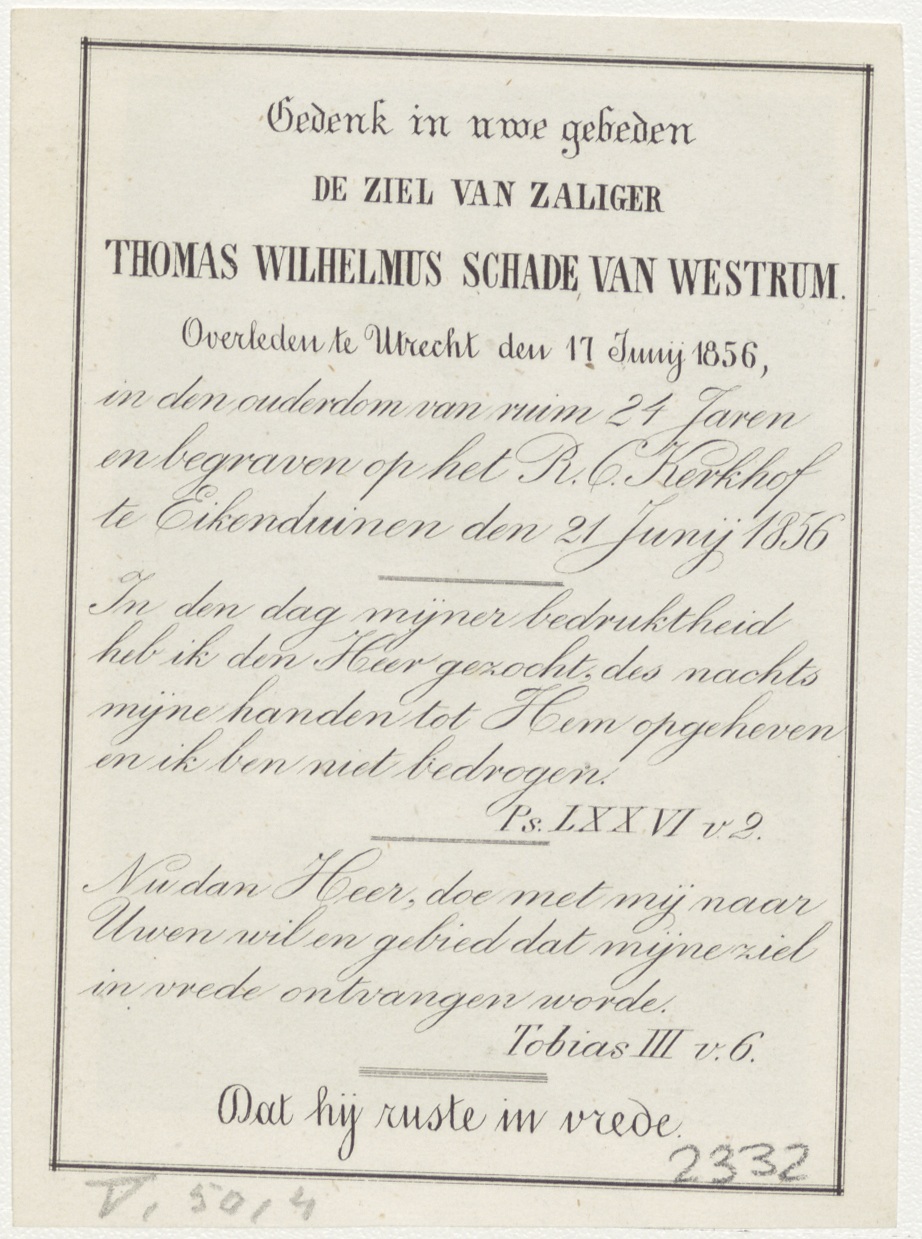 Gedenk in uwe gebeden
DE ZIEL VAN ZALIGER
THOMAS WILHELMUS SCHADE VAN WESTRUM.
Overleden te Utrecht den 17 Junij 1856,
in den ouderdom van ruim 24 Jaren
en begraven op het R. C. Kerkhof
te Eikenduinen den 21 Junij 1856
In den dag mijner bedruktheid
heb ik den Heer gezocht, des nachts
mijne handen tot Hem opgeheven
en ik ben niet bedrogen.
Ps. LXXVI v. 2.
Nu dan Heer, doe met mij naar
Uwen wil en gebied dat mijne ziel
in vrede ontvangen worde.
Tobias III v. 6.
Dat hij ruste in vrede.
2332
V, 50, 4